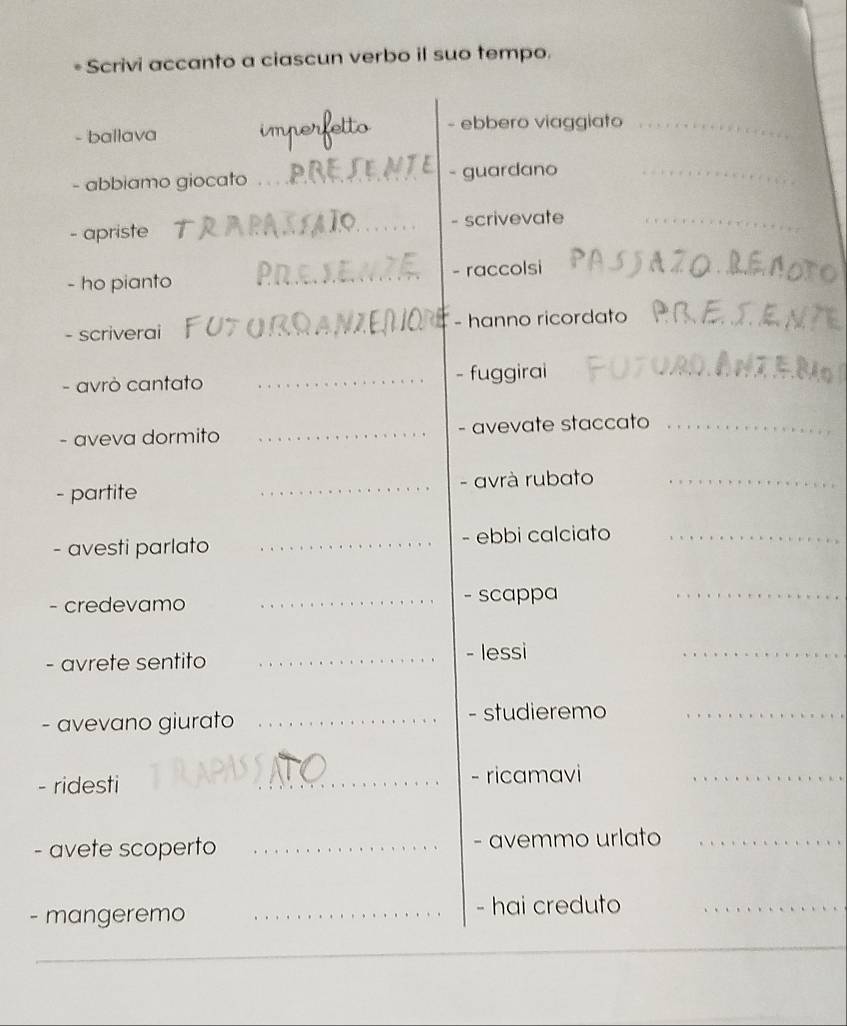 • Scrivi accanto a ciascun verbo il suo tempo.
- ballava imperfetto
- abbiamo giocato PRESENTE
- apriste TRAPASSATO
- ho pianto PRESENTE
- scriverai FUTURO ANTERIORE
- avrò cantato
- aveva dormito
- partite
- avesti parlato
- credevamo
- avrete sentito
- avevano giurato
- ridesti TRAPASSATO
- avete scoperto
- mangeremo
- ebbero viaggiato
- guardano
- scrivevate
- raccolsi PASSATO REMOTO
- hanno ricordato PRESENTE
- fuggirai FUTURO ANTERIO
- avevate staccato
- avrà rubato
- ebbi calciato
- scappa
- lessi
- studieremo
- ricamavi
- avemmo urlato
- hai creduto